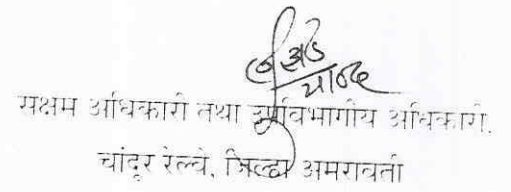 सक्षम अधिकारी तथा उपविभागीय अधिकारी.
चांदूर रेल्वे, जिल्हा अमरावती